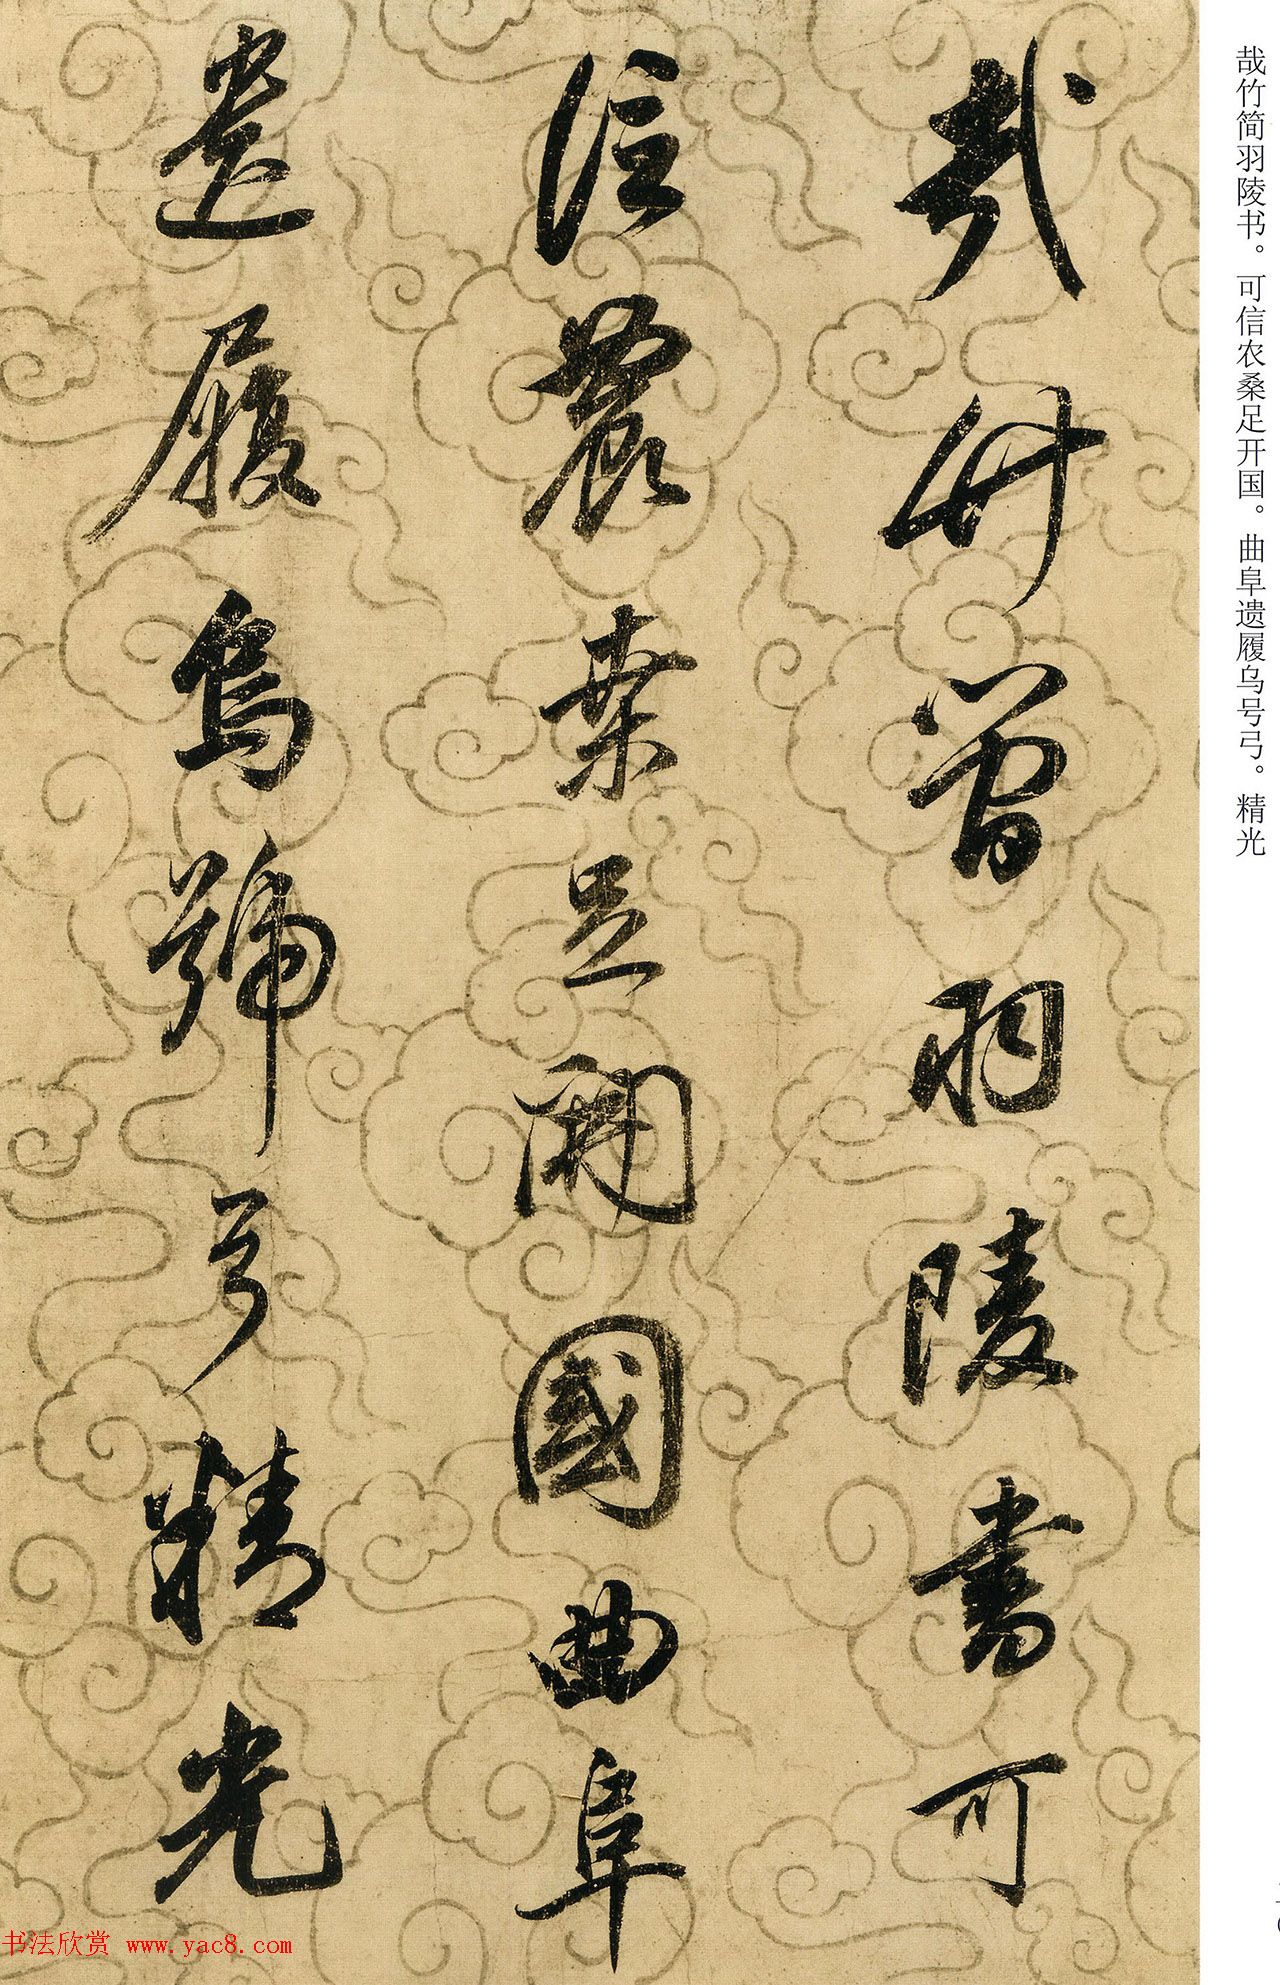 哉竹简羽陵书。可信农桑足开国。曲阜遗履乌号弓。精光
哉竹簡羽陵書可
信農桒足開國曲阜
遺履烏號弓精光
书法欣赏 www.yac8.com